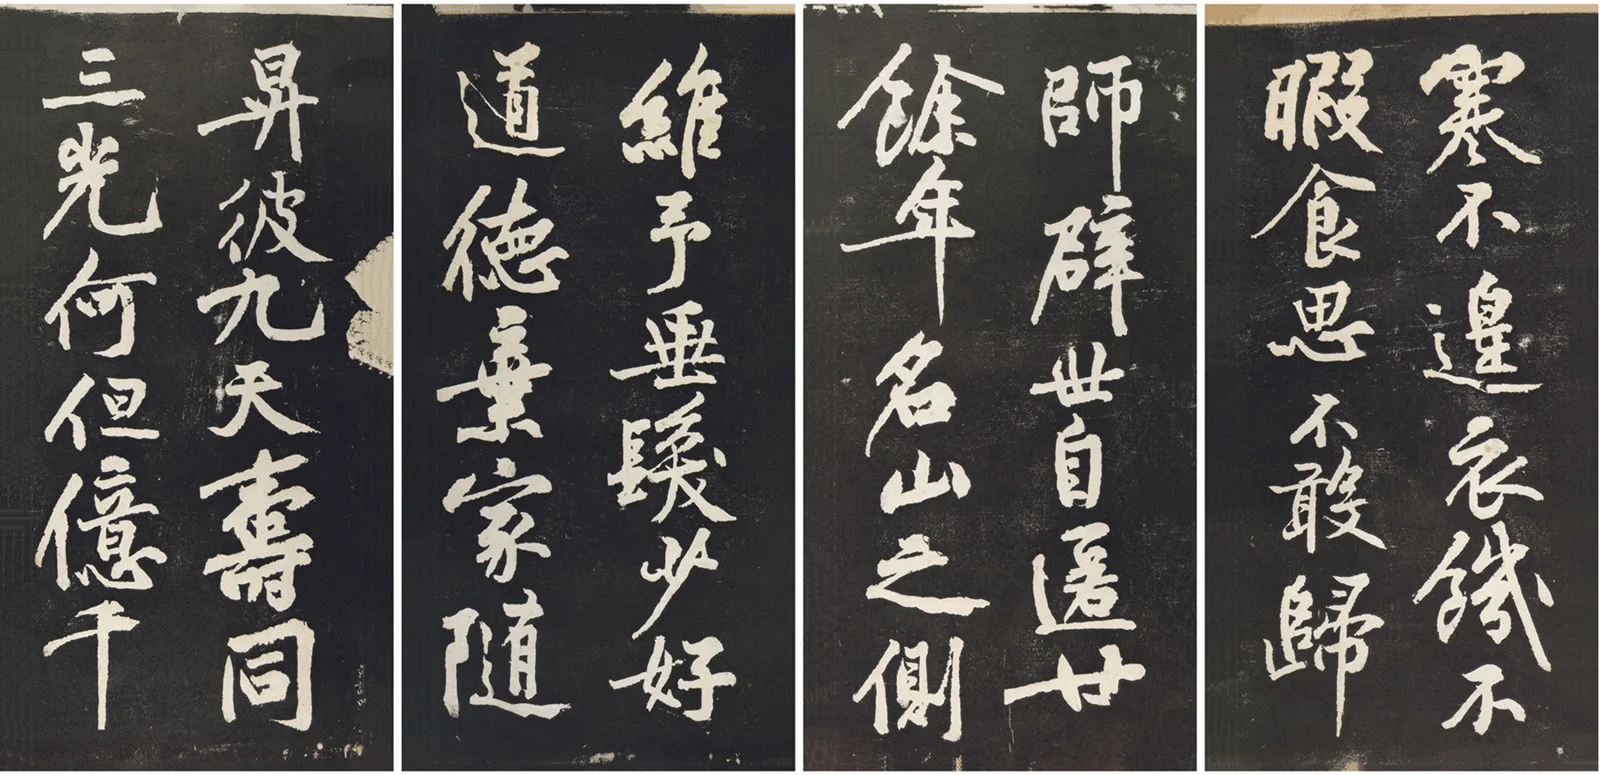 昇彼九天壽同
三光何但億千
維予垂髮少好
道德棄家隨
師辟世自匿廿
餘年名山之側
寒不遑衣饑不
暇食思不敢歸